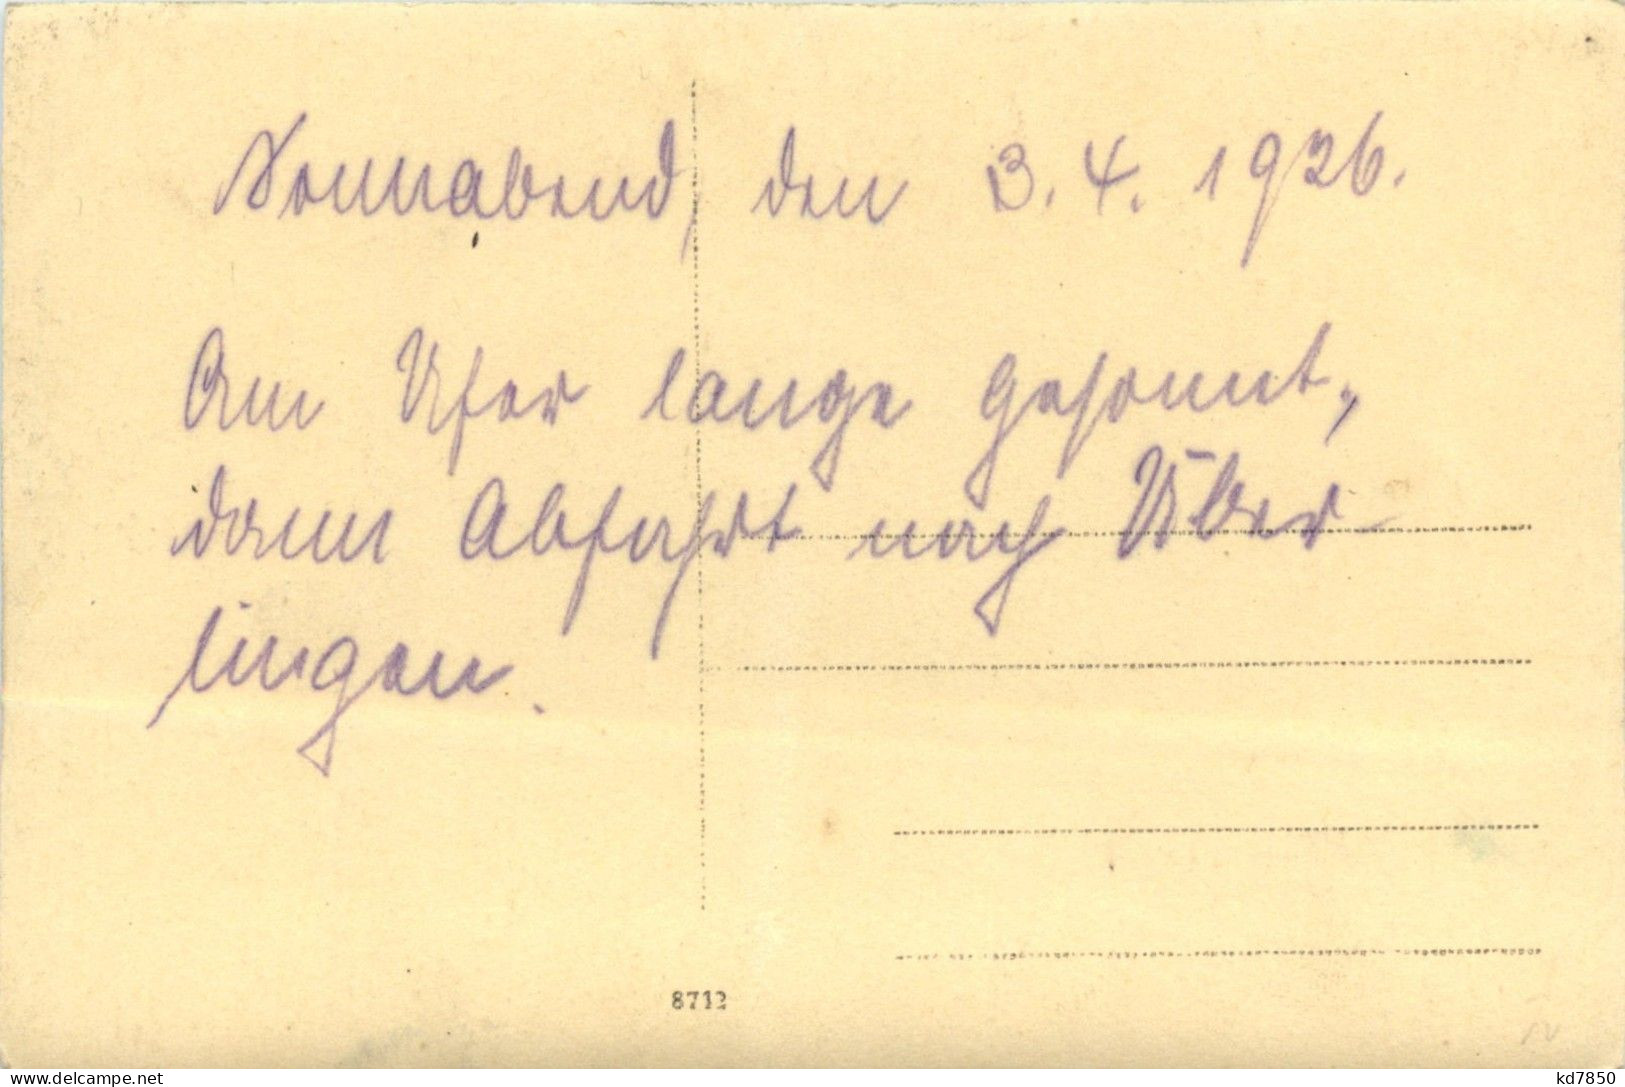 Sonnabend, den 3.4.1926.
Am Ufer lange gesonnt,
dann Abfahrt nach Über
lingen.
8712
delcampe.net
kd7850